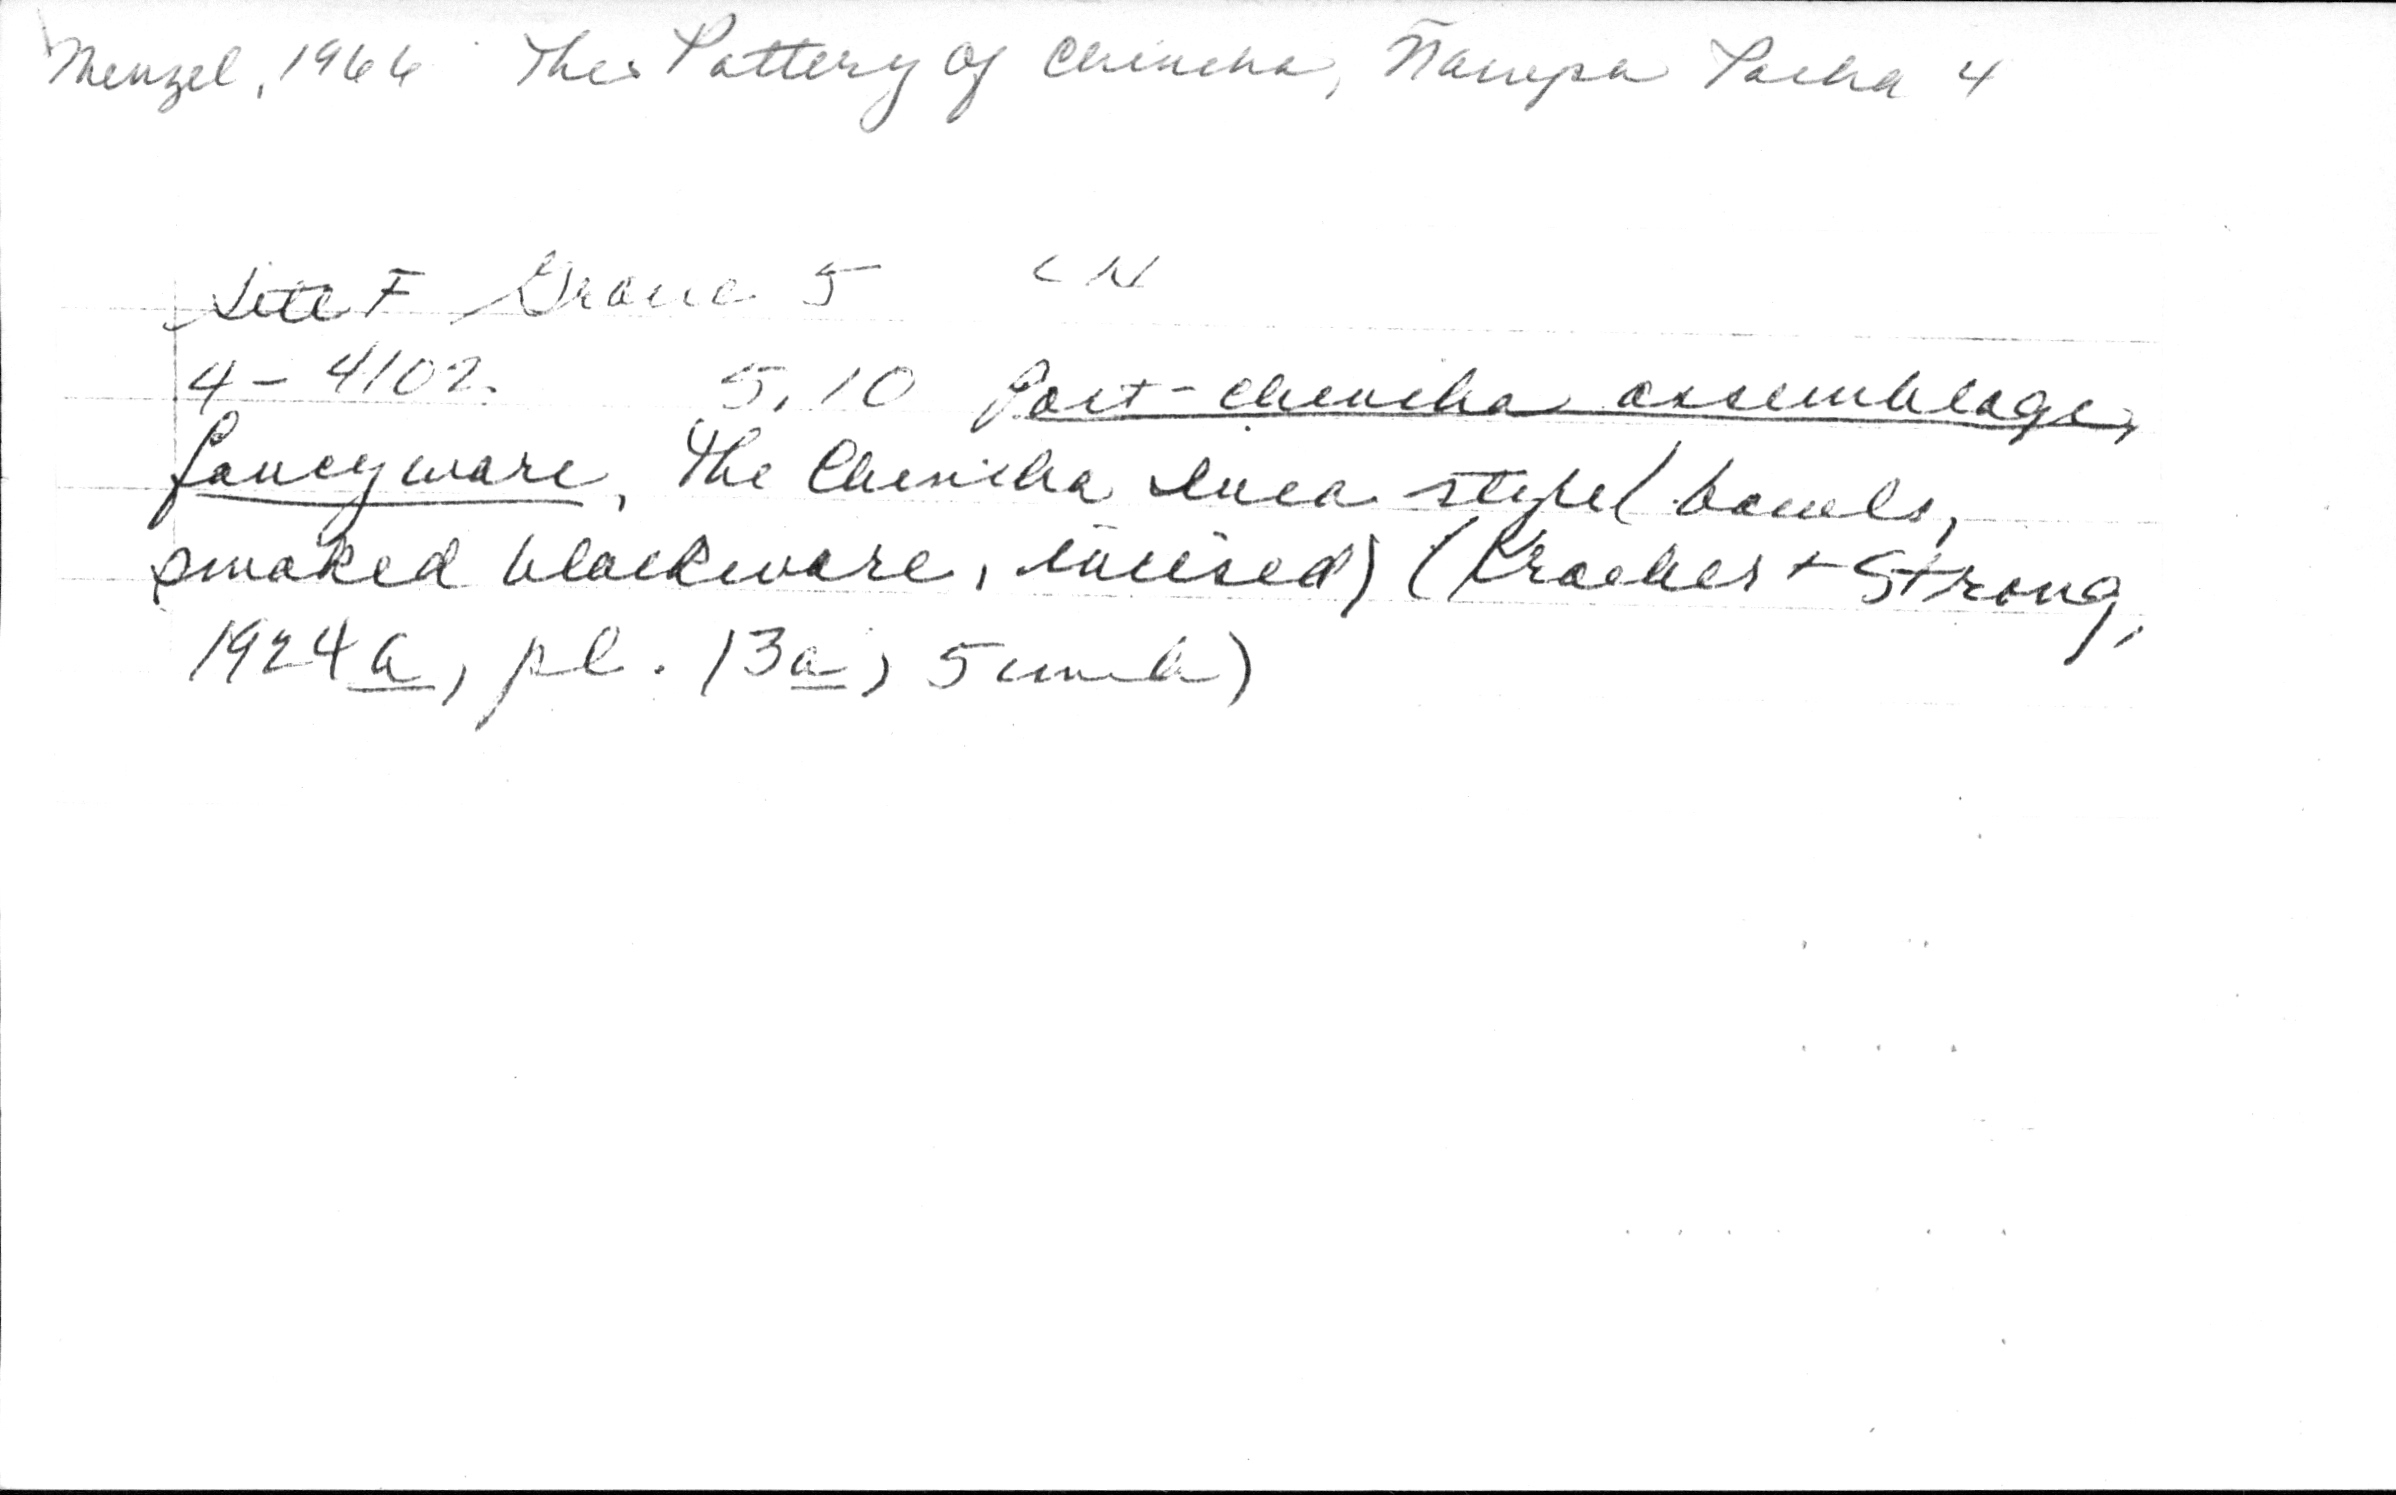 Menzel, 1966 The Pottery of Chincha, Ñawpa Pacha 4
Site F Grave 5
4-4102 5,10 Post-Chincha assemblage,
fancyware, the Chincha Inca style (bowls,
smoked blackware, incised) (Kroeber + Strong,
1924a, pl. 13a,